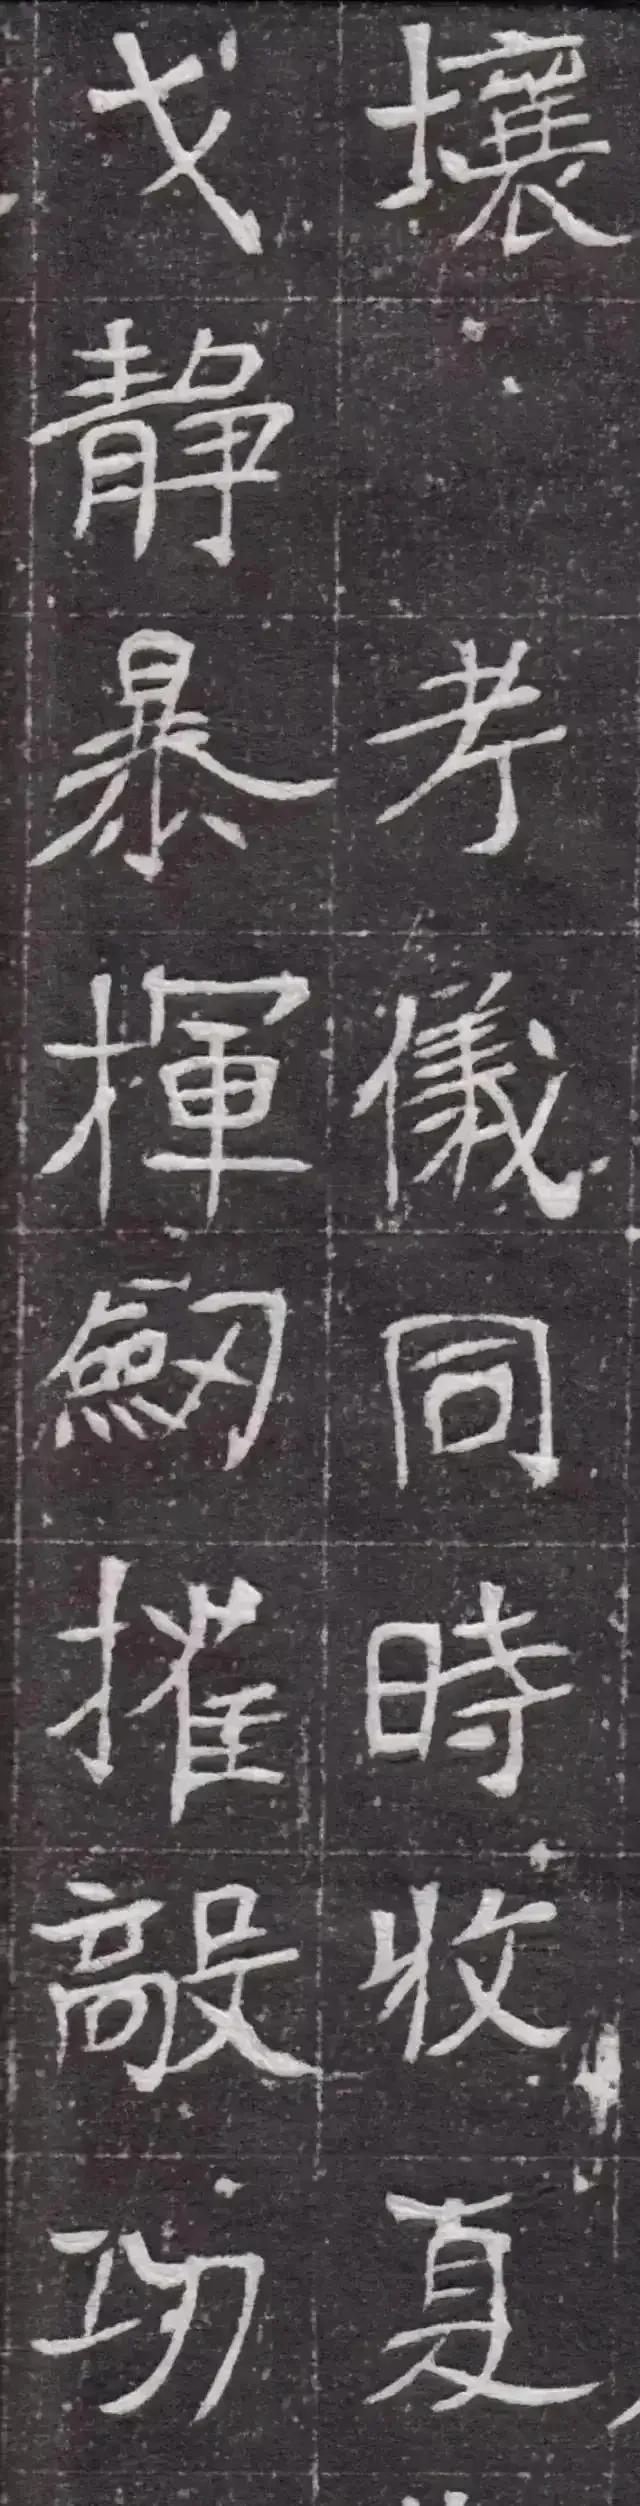 壤考儀同時收夏
戈静暴揮劒摧毃功